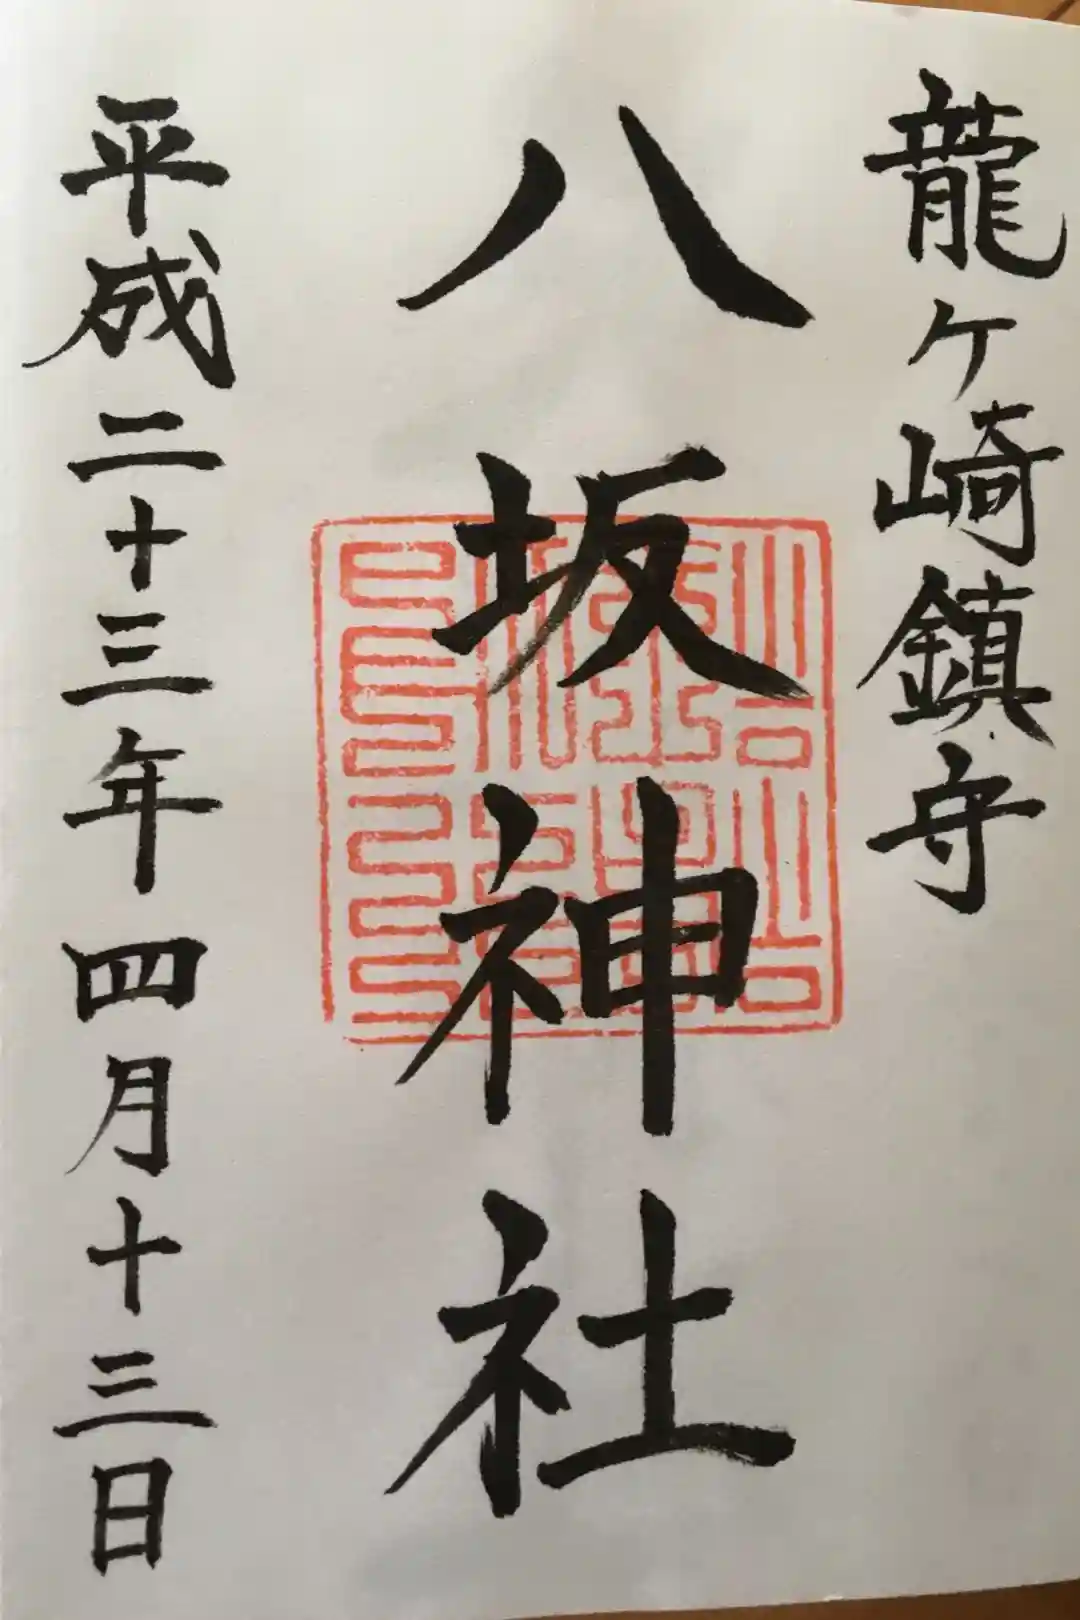 龍ケ崎鎮守
八坂神社
平成二十三年四月十三日